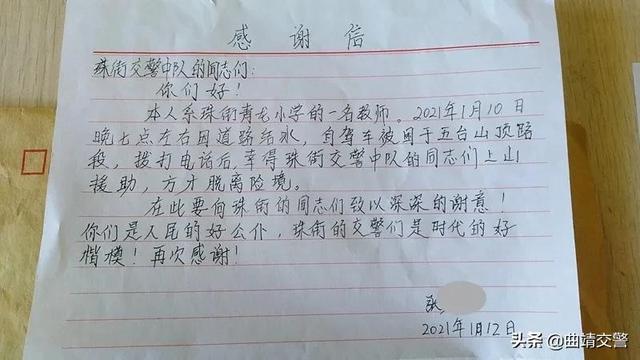 感谢信
珠街交警中队的同志们:
你们好!
本人系珠街青龙小学的一名教师。2021年1月10日
晚七点左右因道路结冰,自驾车被困于五台山顶路
段,拨打电话后,幸得珠街交警中队的同志们上山
援助,方才脱离险境。
在此要向珠街的同志们致以深深的谢意!
你们是人民的好公仆,珠街的交警们是时代的好
楷模!再次感谢!
张
2021年1月12日
头条 @曲靖交警